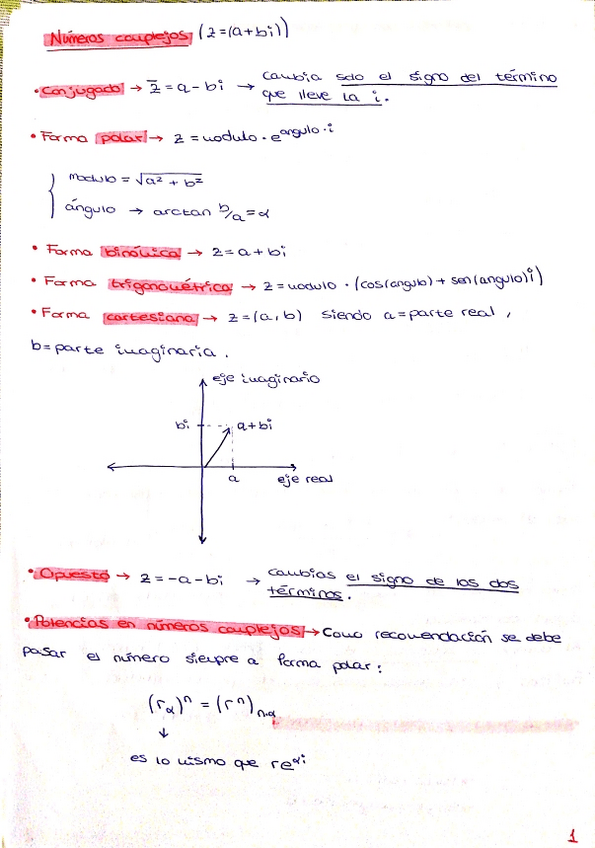 Números complejos (z=(a+bi))
• Conjugado → z̅ = a - bi → cambia solo el signo del término
que lleve la i.
• Forma polar → z = modulo · e^ángulo·i
modulo = √a² + b²
ángulo → arctan b/a = α
• Forma binómica → z = a + bi
• Forma trigonométrica → z = modulo · (cos(angulo) + sen(angulo)i)
• Forma cartesiana → z = (a, b) siendo a = parte real,
b = parte imaginaria.
eje imaginario
bi a+bi
a eje real
• Opuesto → z = -a - bi → cambias el signo de los dos
términos.
• Potencias en números complejos → Como recomendación se debe
pasar el número siempre a forma polar:
(r_α)^n = (r^n)_n·α
↓
es lo mismo que re^αi
1